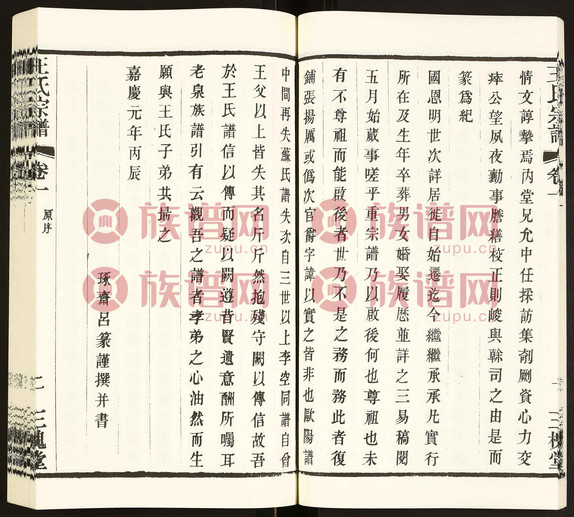 情文諄摯焉丙堂兄允中任採訪集剤劂資心力交
瘁公望夙夜勷事謄繕校正則峻與榦司之由是而
篆爲紀
國恩明世次詳居徙自始遷迄今繼繼承承凡實行
所在及生年卒葬男女婚娶履歷並詳之三易稿閱
五月始蕆事嗟乎重宗譜乃以啟後何也尊祖也未
有不尊祖而能啟後者世乃不是之務而務此者復
鋪張揚厲或僞爲次官爵字諱以實之皆非也歐陽譜
中間再失蘇氏譜失次自三世以上李空同譜自曾
王父以上皆失其名斤斤然抱殘守闕以傳信故吾
於王氏譜信以傳而疑以闕遊昔賢遺意酬所囑耳
老泉族譜引有云觀吾之譜者孝弟之心油然而生
願與王氏子弟共勗之
嘉慶元年丙辰
琢齋呂篆謹撰并書
王氏宗譜
卷一
原序
二
三槐堂
王氏宗譜
卷一
三槐堂
族谱网
zupu.cn
族谱网
zupu.cn
族谱网
zupu.cn
族谱网
zupu.cn